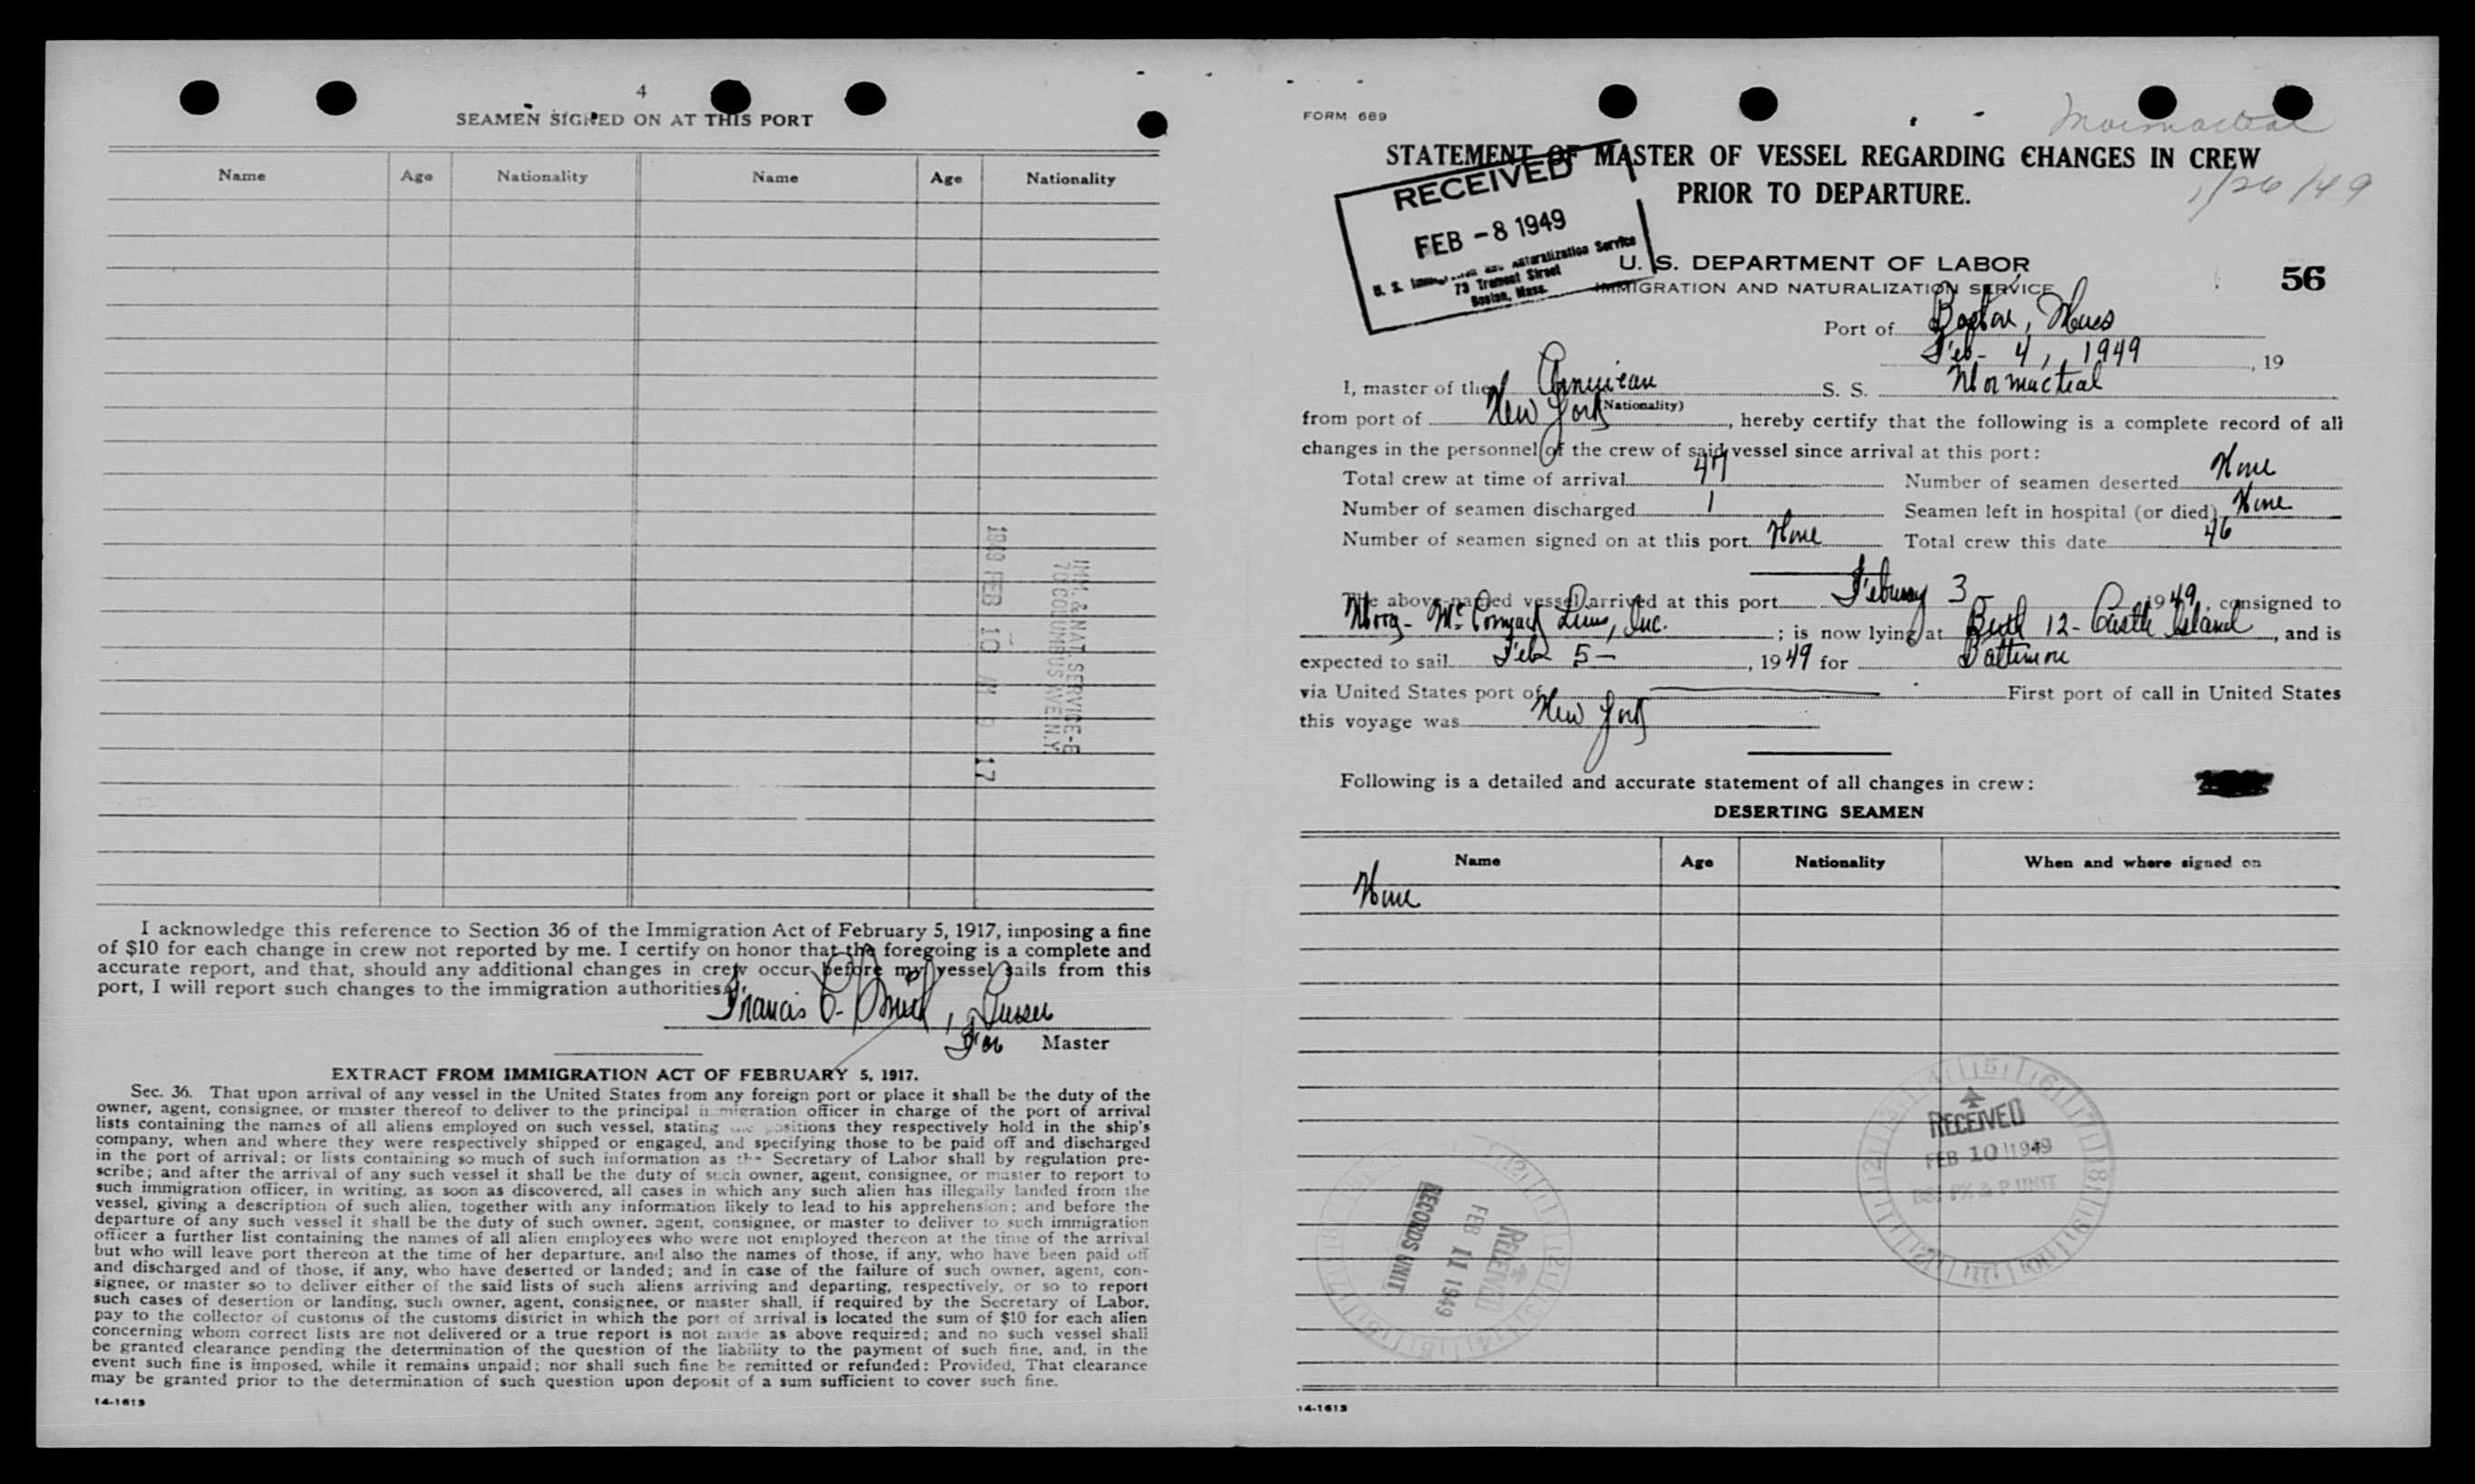 4
SEAMEN SIGNED ON AT THIS PORT
Name Age Nationality Name Age Nationality
1949 FEB 10 AM 9 17
IMM. & NAT. SERVICE-B
70 COLUMBUS AVE. N.Y.
I acknowledge this reference to Section 36 of the Immigration Act of February 5, 1917, imposing a fine
of $10 for each change in crew not reported by me. I certify on honor that the foregoing is a complete and
accurate report, and that, should any additional changes in crew occur before my vessel sails from this
port, I will report such changes to the immigration authorities.
Francis C. , Purser
For Master
EXTRACT FROM IMMIGRATION ACT OF FEBRUARY 5, 1917.
Sec. 36. That upon arrival of any vessel in the United States from any foreign port or place it shall be the duty of the
owner, agent, consignee, or master thereof to deliver to the principal immigration officer in charge of the port of arrival
lists containing the names of all aliens employed on such vessel, stating the positions they respectively hold in the ship's
company, when and where they were respectively shipped or engaged, and specifying those to be paid off and discharged
in the port of arrival; or lists containing so much of such information as the Secretary of Labor shall by regulation pre-
scribe; and after the arrival of any such vessel it shall be the duty of such owner, agent, consignee, or master to report to
such immigration officer, in writing, as soon as discovered, all cases in which any such alien has illegally landed from the
vessel, giving a description of such alien, together with any information likely to lead to his apprehension; and before the
departure of any such vessel it shall be the duty of such owner, agent, consignee, or master to deliver to such immigration
officer a further list containing the names of all alien employees who were not employed thereon at the time of the arrival
but who will leave port thereon at the time of her departure, and also the names of those, if any, who have been paid off
and discharged and of those, if any, who have deserted or landed; and in case of the failure of such owner, agent, con-
signee, or master so to deliver either of the said lists of such aliens arriving and departing, respectively, or so to report
such cases of desertion or landing, such owner, agent, consignee, or master shall, if required by the Secretary of Labor,
pay to the collector of customs of the customs district in which the port of arrival is located the sum of $10 for each alien
concerning whom correct lists are not delivered or a true report is not made as above required; and no such vessel shall
be granted clearance pending the determination of the question of the liability to the payment of such fine, and, in the
event such fine is imposed, while it remains unpaid; nor shall such fine be remitted or refunded: Provided, That clearance
may be granted prior to the determination of such question upon deposit of a sum sufficient to cover such fine.
14-1613
FORM 689
Mormacteal
1/26/49
STATEMENT OF MASTER OF VESSEL REGARDING CHANGES IN CREW
PRIOR TO DEPARTURE.
RECEIVED
FEB -8 1949
U. S. Immigration and Naturalization Service
73 Tremont Street
Boston, Mass.
U. S. DEPARTMENT OF LABOR
IMMIGRATION AND NATURALIZATION SERVICE
56
Port of Boston, Mass
Feb- 4, 1949, 19
I, master of the American S. S. Mormacteal
(Nationality)
from port of New York, hereby certify that the following is a complete record of all
changes in the personnel of the crew of said vessel since arrival at this port:
Total crew at time of arrival 47 Number of seamen deserted None
Number of seamen discharged 1 Seamen left in hospital (or died) None
Number of seamen signed on at this port None Total crew this date 46
The above-named vessel arrived at this port February 3- 1949, consigned to
Moore-McCormack Lines, Inc.; is now lying at Berth 12- Castle Island, and is
expected to sail Feb 5-, 1949 for Baltimore
via United States port of First port of call in United States
this voyage was New York
Following is a detailed and accurate statement of all changes in crew:
DESERTING SEAMEN
Name Age Nationality When and where signed on
None
RECEIVED
FEB 10 1949
RECEIVED
FEB 11 1949
RECORDS UNIT
14-1613